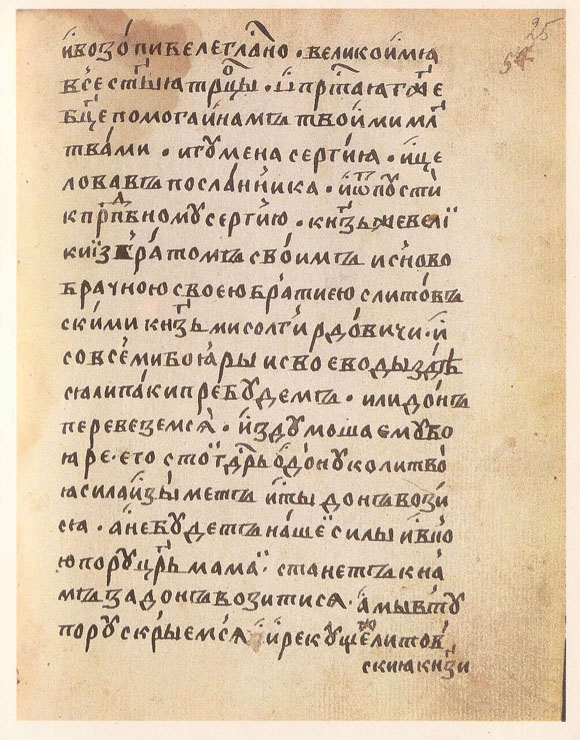 25
54
и возопи велегла́сно · велико имѧ
всесты́ѧ трⷪ҇цы · и прⷭ҇таѧ гж҃е
бц҃е помогаи намъ твоими млт҃
твами · игумена сергиѧ · и це
ловавъ посланника · и ѿпусти
к прпⷣбному сергию · кнз҃ь же вели
кии з братомъ своимъ и с ново
брачною своею братиею с литовъ
скими кнзⷭ҇ьми с олгирдовичи · и
со всеми боѧры и с воеводы здѣ
сѧ ли паки пребудемъ · или донъ
перевеземсѧ · и здумоша ему бо
ѧре · ето стои гдⷭ҇рь о дону колитво
ѧ сила и зыметъ и ты донъ вози
сѧ · а не будетъ нашеи силы и в тⷪ
ю пору црⷭ҇ь мамаи · станетъ к на
мъ за донъ возитисѧ · а мы в ту
пору скрыемсѧ и рекуще же литов
скиѧ кнⷭ҇зи